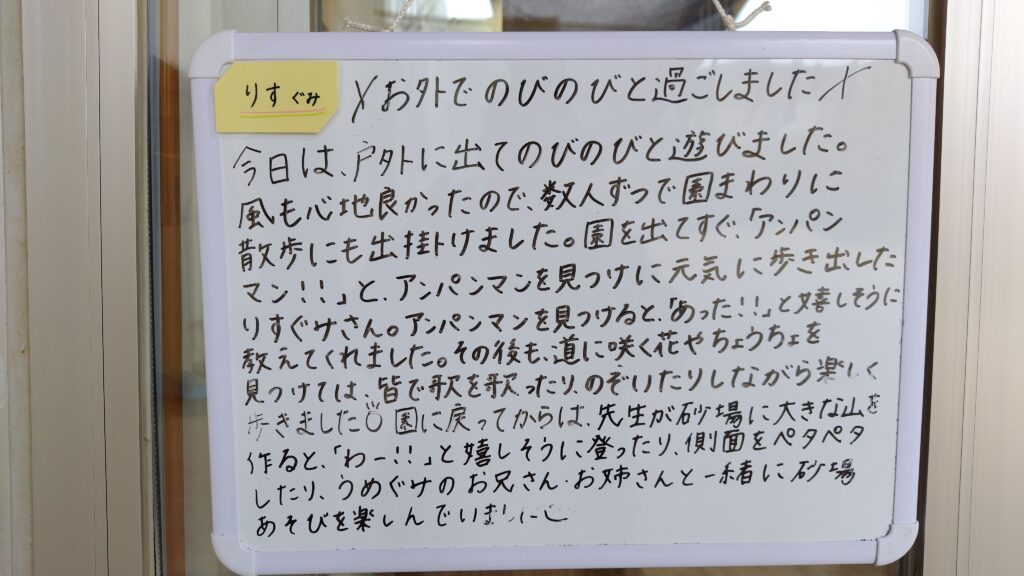 りす ぐみ
お外でのびのびと過ごしました
今日は、戸外に出てのびのびと遊びました。
風も心地良かったので、数人ずつで園まわりに
散歩にも出掛けました。園を出てすぐ、「アンパン
マン!!」と、アンパンマンを見つけに元気に歩き出した
りすぐみさん。アンパンマンを見つけると、「あった!!」と嬉しそうに
教えてくれました。その後も、道に咲く花やちょうちょを
見つけては、皆で歌を歌ったり、のぞいたりしながら楽しく
歩きました 園に戻ってからは、先生が砂場に大きな山を
作ると、「わー!!」と嬉しそうに登ったり、側面をペタペタ
したり、うめぐみのお兄さん・お姉さんと一緒に砂場
あそびを楽しんでいました